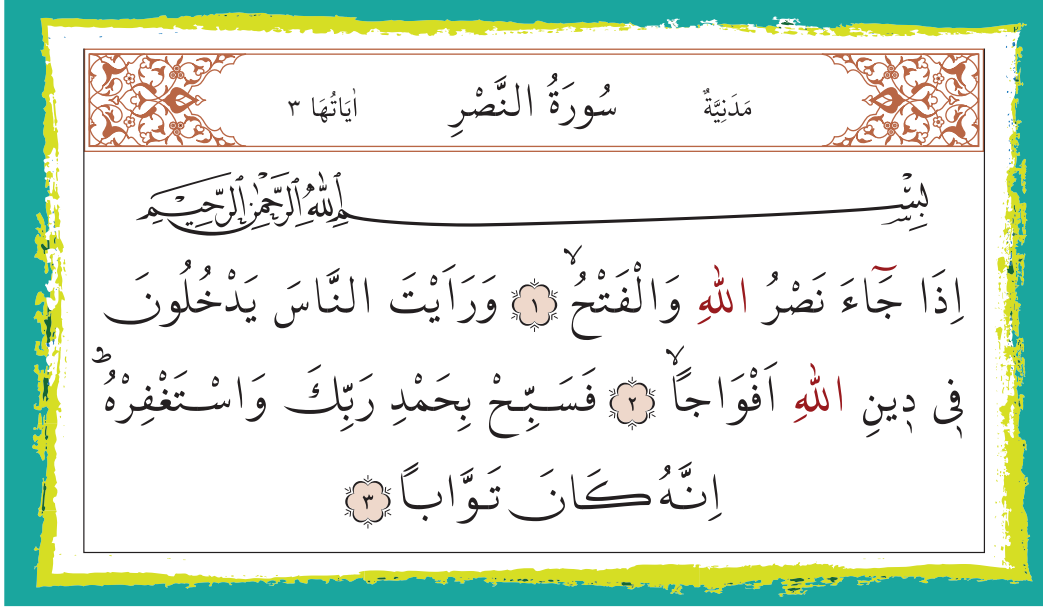 مَدَنِيَّةٌ سُورَةُ النَّصْرِ اٰيَاتُهَا ٣
بِسْمِ اللّٰهِ الرَّحْمٰنِ الرَّحِيمِ
اِذَا جَٓاءَ نَصْرُ اللّٰهِ وَالْفَتْحُۙ ١ وَرَاَيْتَ النَّاسَ يَدْخُلُونَ
فٖى دٖينِ اللّٰهِ اَفْوَاجاًۙ ٢ فَسَبِّحْ بِحَمْدِ رَبِّكَ وَاسْتَغْفِرْهُؕ
اِنَّهُ كَانَ تَوَّاباً ٣